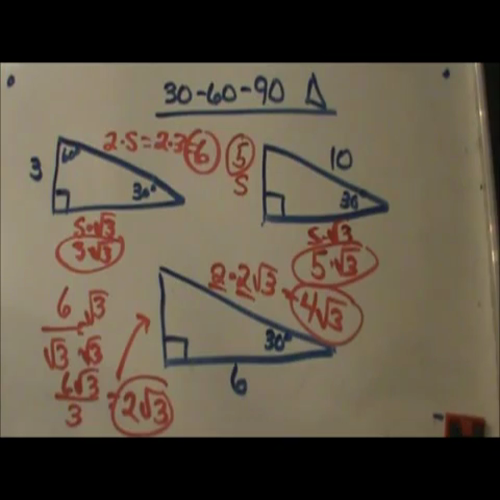 30-60-90 Δ
3 60° 30° 2·s=2·3=6
s·√3
3√3
5 10
s 30
s·√3
5·√3
2·2√3=4√3
30°
6
6 √3
√3 √3
6√3
3 =2√3